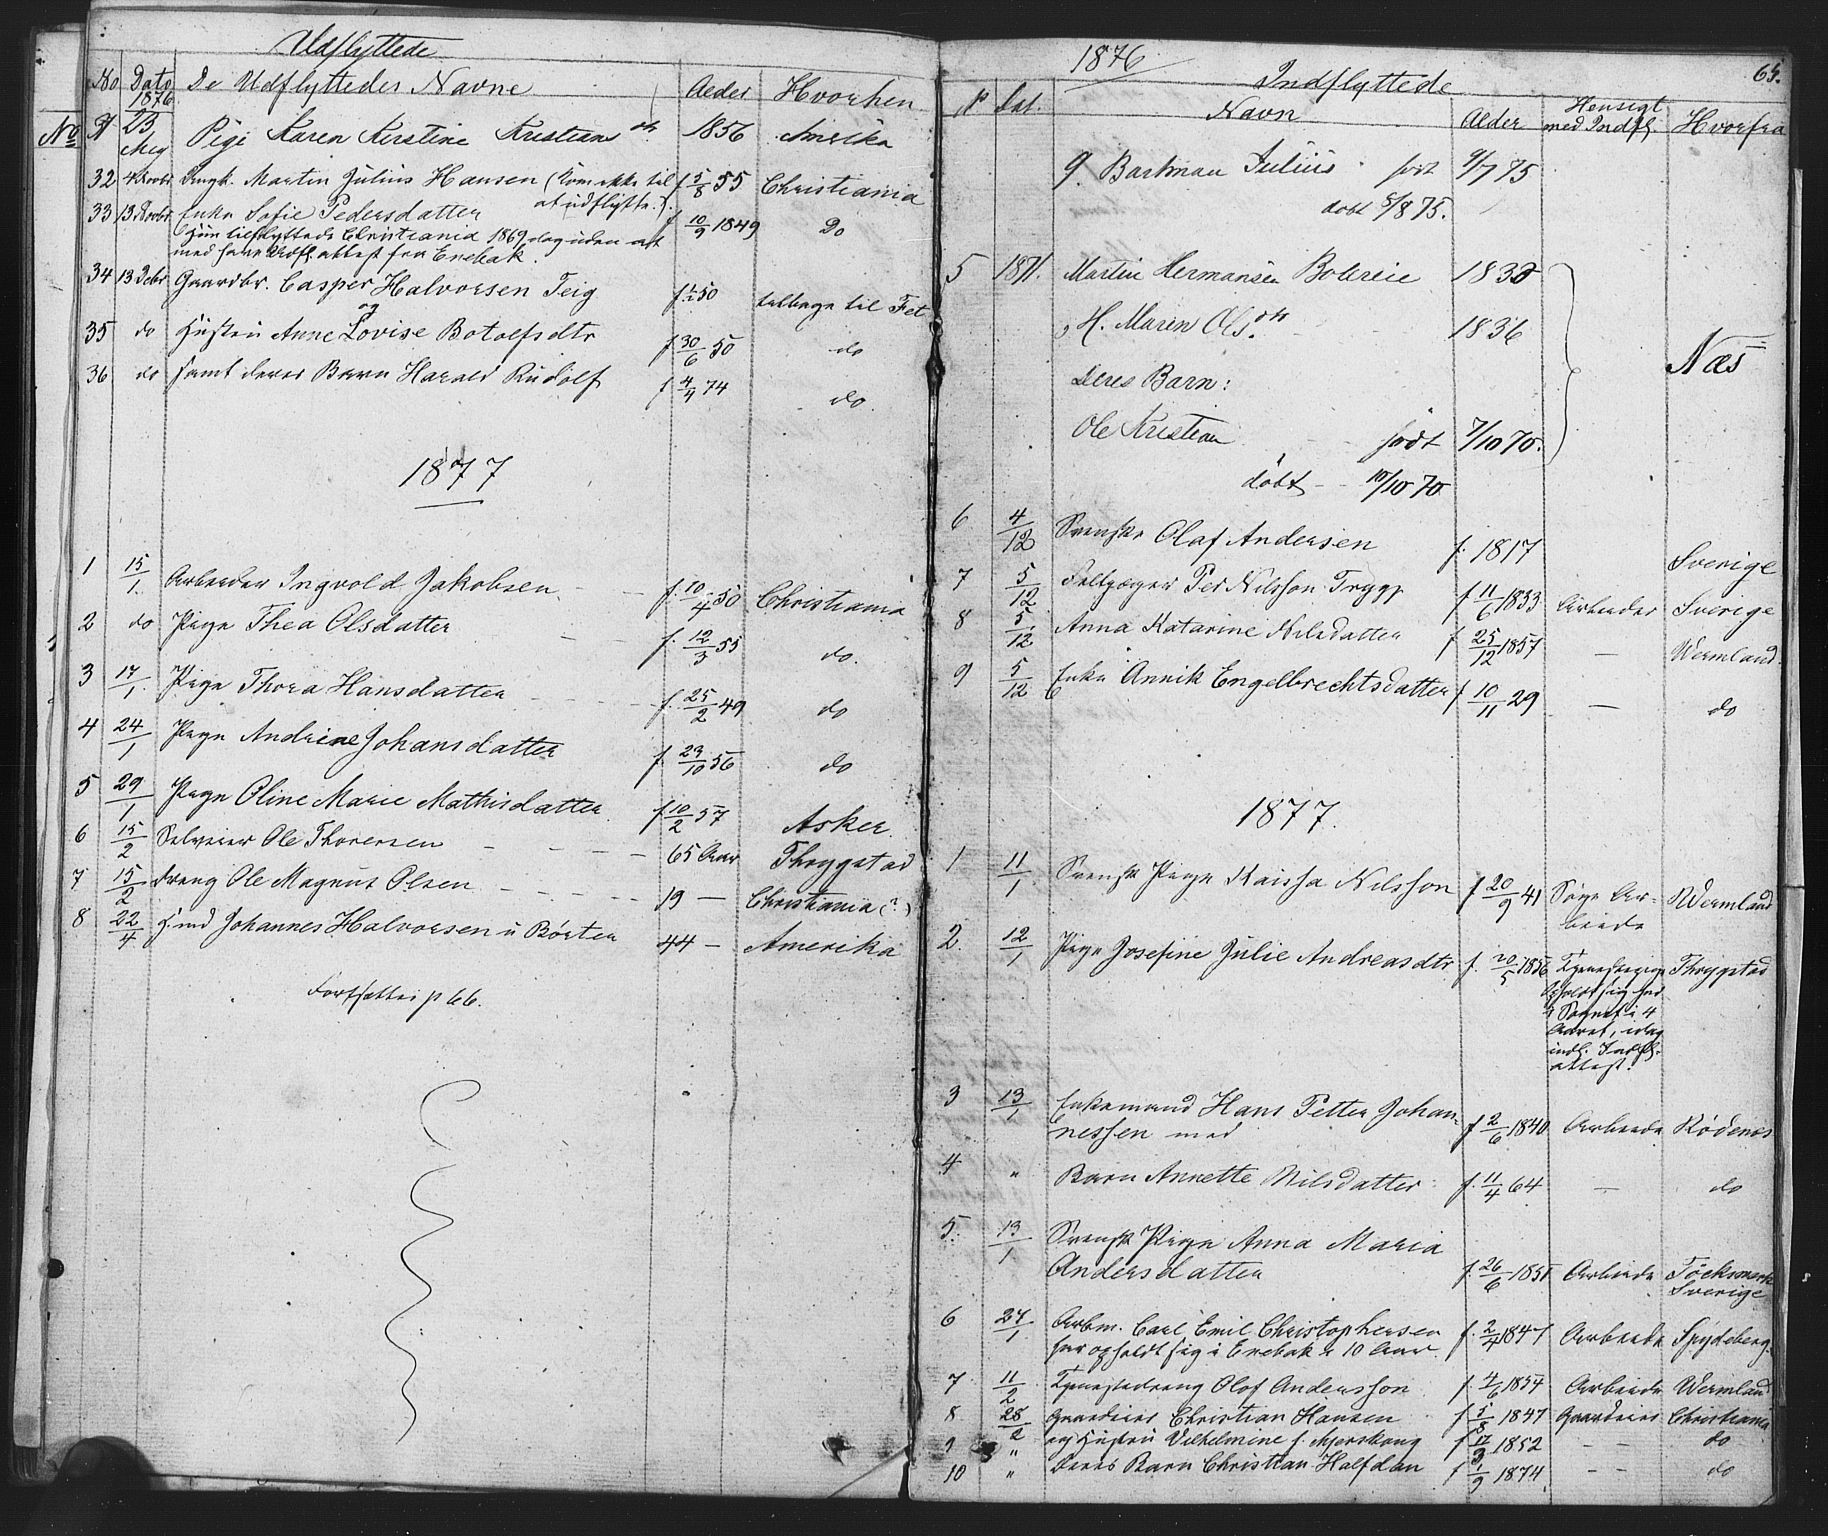 Udflyttede
No Dato 1876 De Udflyttedes Navne Alder Hvorhen
No 31 23 Aug Pige Karen Kirstine Kristians dtr 1856 Amerika
32 4 Novbr Ungk. Martin Julius Hansen (kom ikke til at udflytte.) f 5/8 55 Christiania
33 13 Decbr Enke Sofie Pedersdatter f 10/9 1849 Do
Hun tilflyttede Christiania 1869, dog uden at
med Udfl. attest fra Enebak.
34 13 Decbr Gaardbr. Casper Halvorsen Teig f 1/1 50 tilbage til Fet
og
35 do Hustru Anne Lovise Botolfsdtr f 30/6 50 do
36 do samt deres Barn Harald Rudolf f 4/4 74 do.
1877
1 15/1. Arbeider Ingvold Jakobsen f. 10/4 50 Christiania
2 do Pige Thea Olsdatter f. 12/3 55 do.
3 17/1. Pige Thora Hansdatter f. 25/2 49 do
4 24/1 Pige Andrine Johansdatter f. 23/10 56 do
5 29/1 Pige Oline Marie Mathisdatter f. 10/2 57 Asker.
6 15/2 Selveier Ole Thoresen 65 Aar Thrygstad
7 15/2 Dreng Ole Magnus Olsen 19 — Christiania (?)
8 22/4 Johannes Halvorsen u Börter 44 — Amerika
Fortsættes p 66.
1876
65.
Indflyttede
N Dat. Navn Alder Hensigt med Indfl. Hvorfra
g. Bartman Julius født 9/7 75
døbt 5/8 75.
5 1871. Martin Hermansen Bolereie 1830
H. Maren Ols dtr 1836 Næs
Deres Barn:
Ole Kristian født 7/10 70.
døbt 10/10 70
6 4/12 Svenske Olaf Andersen f. 1817 Sverige
7 5/12 Feltjæger Per Nilsson Trygg f 11/6 1833 Arbeider Sverige
8 5/12 Anna Katarine Nilsdatter f 25/12 1857 — Wermland.
9 5/12 Enke Annik Engelbrechtsdatter f 10/11 29 — do
1877.
1 11/1 Svensk Pige Kaisa Nilsson f 20/9 41 Søge Arbeide Wermland
2 12/1 Pige Josefine Julie Andreasdtr f. 20/5 1856 Tjenestepige Thrygstad
opholdt sig her
i Sognet i 4
Aaret, idag
indl. Indfl.
attest.
3 13/1 Enkemand Hans Petter Johannessen med f 2/6 1840 Arbeide Rødenæs
4 " Barn Annette Nilsdatter f. 11/4 64 — do
5. 13/1 Svensk Pige Anna Maria
Andersdatter f. 26/6 1851 Arbeide Töcksmark Sverige
6 27/1 Arbm. Carl Emil Christophersen f. 2/4 1847 Arbeide Spydeberg.
har opholdt sig i Enebak i 10 Aar.
7 11/2 Tjenestedreng Olof Andersson f. 4/6 1854 Arbeide Wermland
8 25/2 Gaardeier Christian Hansen f 5/8 1847 Gaardeier Christiania
9 " og Hustru Vilhelmine f. Mjerskoug f 17/3 1852 — — do
10 " Deres Barn Christian Halfdan f 1/9 1874 — — do